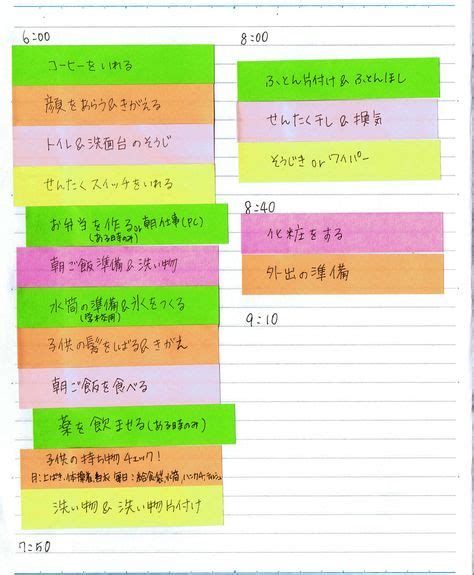 6:00
コーヒーをいれる
顔をあらう&きがえる
トイレ&洗面台のそうじ
せんたくスイッチをいれる
お弁当を作るor朝仕事(PC)
(ある日のみ)
朝ご飯準備&洗い物
水筒の準備&氷をつくる
(学校用)
子供の髪をしばる&きがえ
朝ご飯を食べる
薬を飲ませる(ある時のみ)
子供の持ち物チェック!
月:上ばき、体操着、 毎日:給食袋、水筒、ハンカチ・ティッシュ
洗い物&洗い物片付け
7:50
8:00
ふとん片付け&ふとんほし
せんたく干し&換気
そうじきorワイパー
8:40
化粧をする
外出の準備
9:10